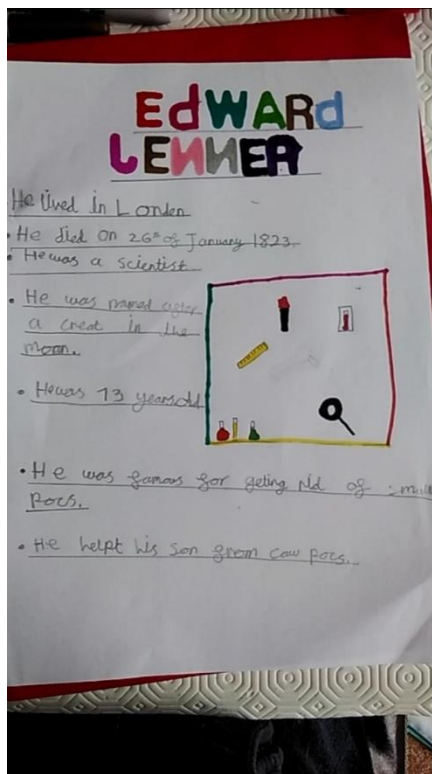 EdWARd
LENNER
He lived in London
• He died on 26th of January 1823.
• He was a scientist
• He was named after
a creat in the
moon.
• He was 73 years old
• He was famous for geting rid of small
Pocs.
• He helpt his son from cow pocs...